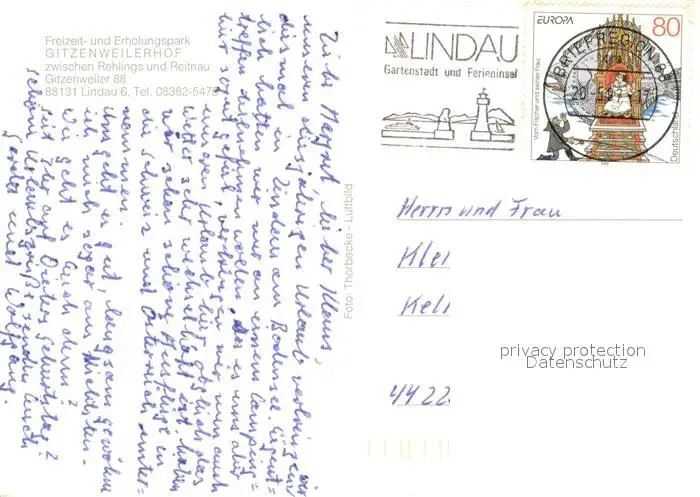 Freizeit- und Erholungspark
GITZENWEILERHOF
zwischen Rehlings und Reitnau
Gitzenweiler 88
88131 Lindau 6, Tel. 08382-5475
Liebe Margret, lieber Klaus,
unseren diesjährigen Urlaub verbringen wir
diesmal in Lindau am Bodensee. Eigent=
lich hatten wir nur an einem Camping=
treffen teilnehmen wollen, da es uns aber
hier so gut gefiel, verbringen wir nun auch
unseren Urlaub hier, obgleich das
Wetter sehr wechselhaft ist, haben
wir schon schöne Ausflüge in
die Schweiz und Österreich unter=
nommen.
Ihm geht es gut, langsam gewöhne
ich mich sogar ans
Wie geht es Euch denn?
Seit Ihr auf Dieters Geburtstag?
Schöne Urlaubsgrüße senden Euch
Gerda und Wolfgang.
Foto: Thorbecke - Luftbild
LINDAU
Gartenstadt und Ferieninsel
EUROPA
80
Vom Fischer und seiner Frau
Deutschland
BRIEFREGION 88
Herrn und Frau
Klei
Kell
4422
privacy protection
Datenschutz